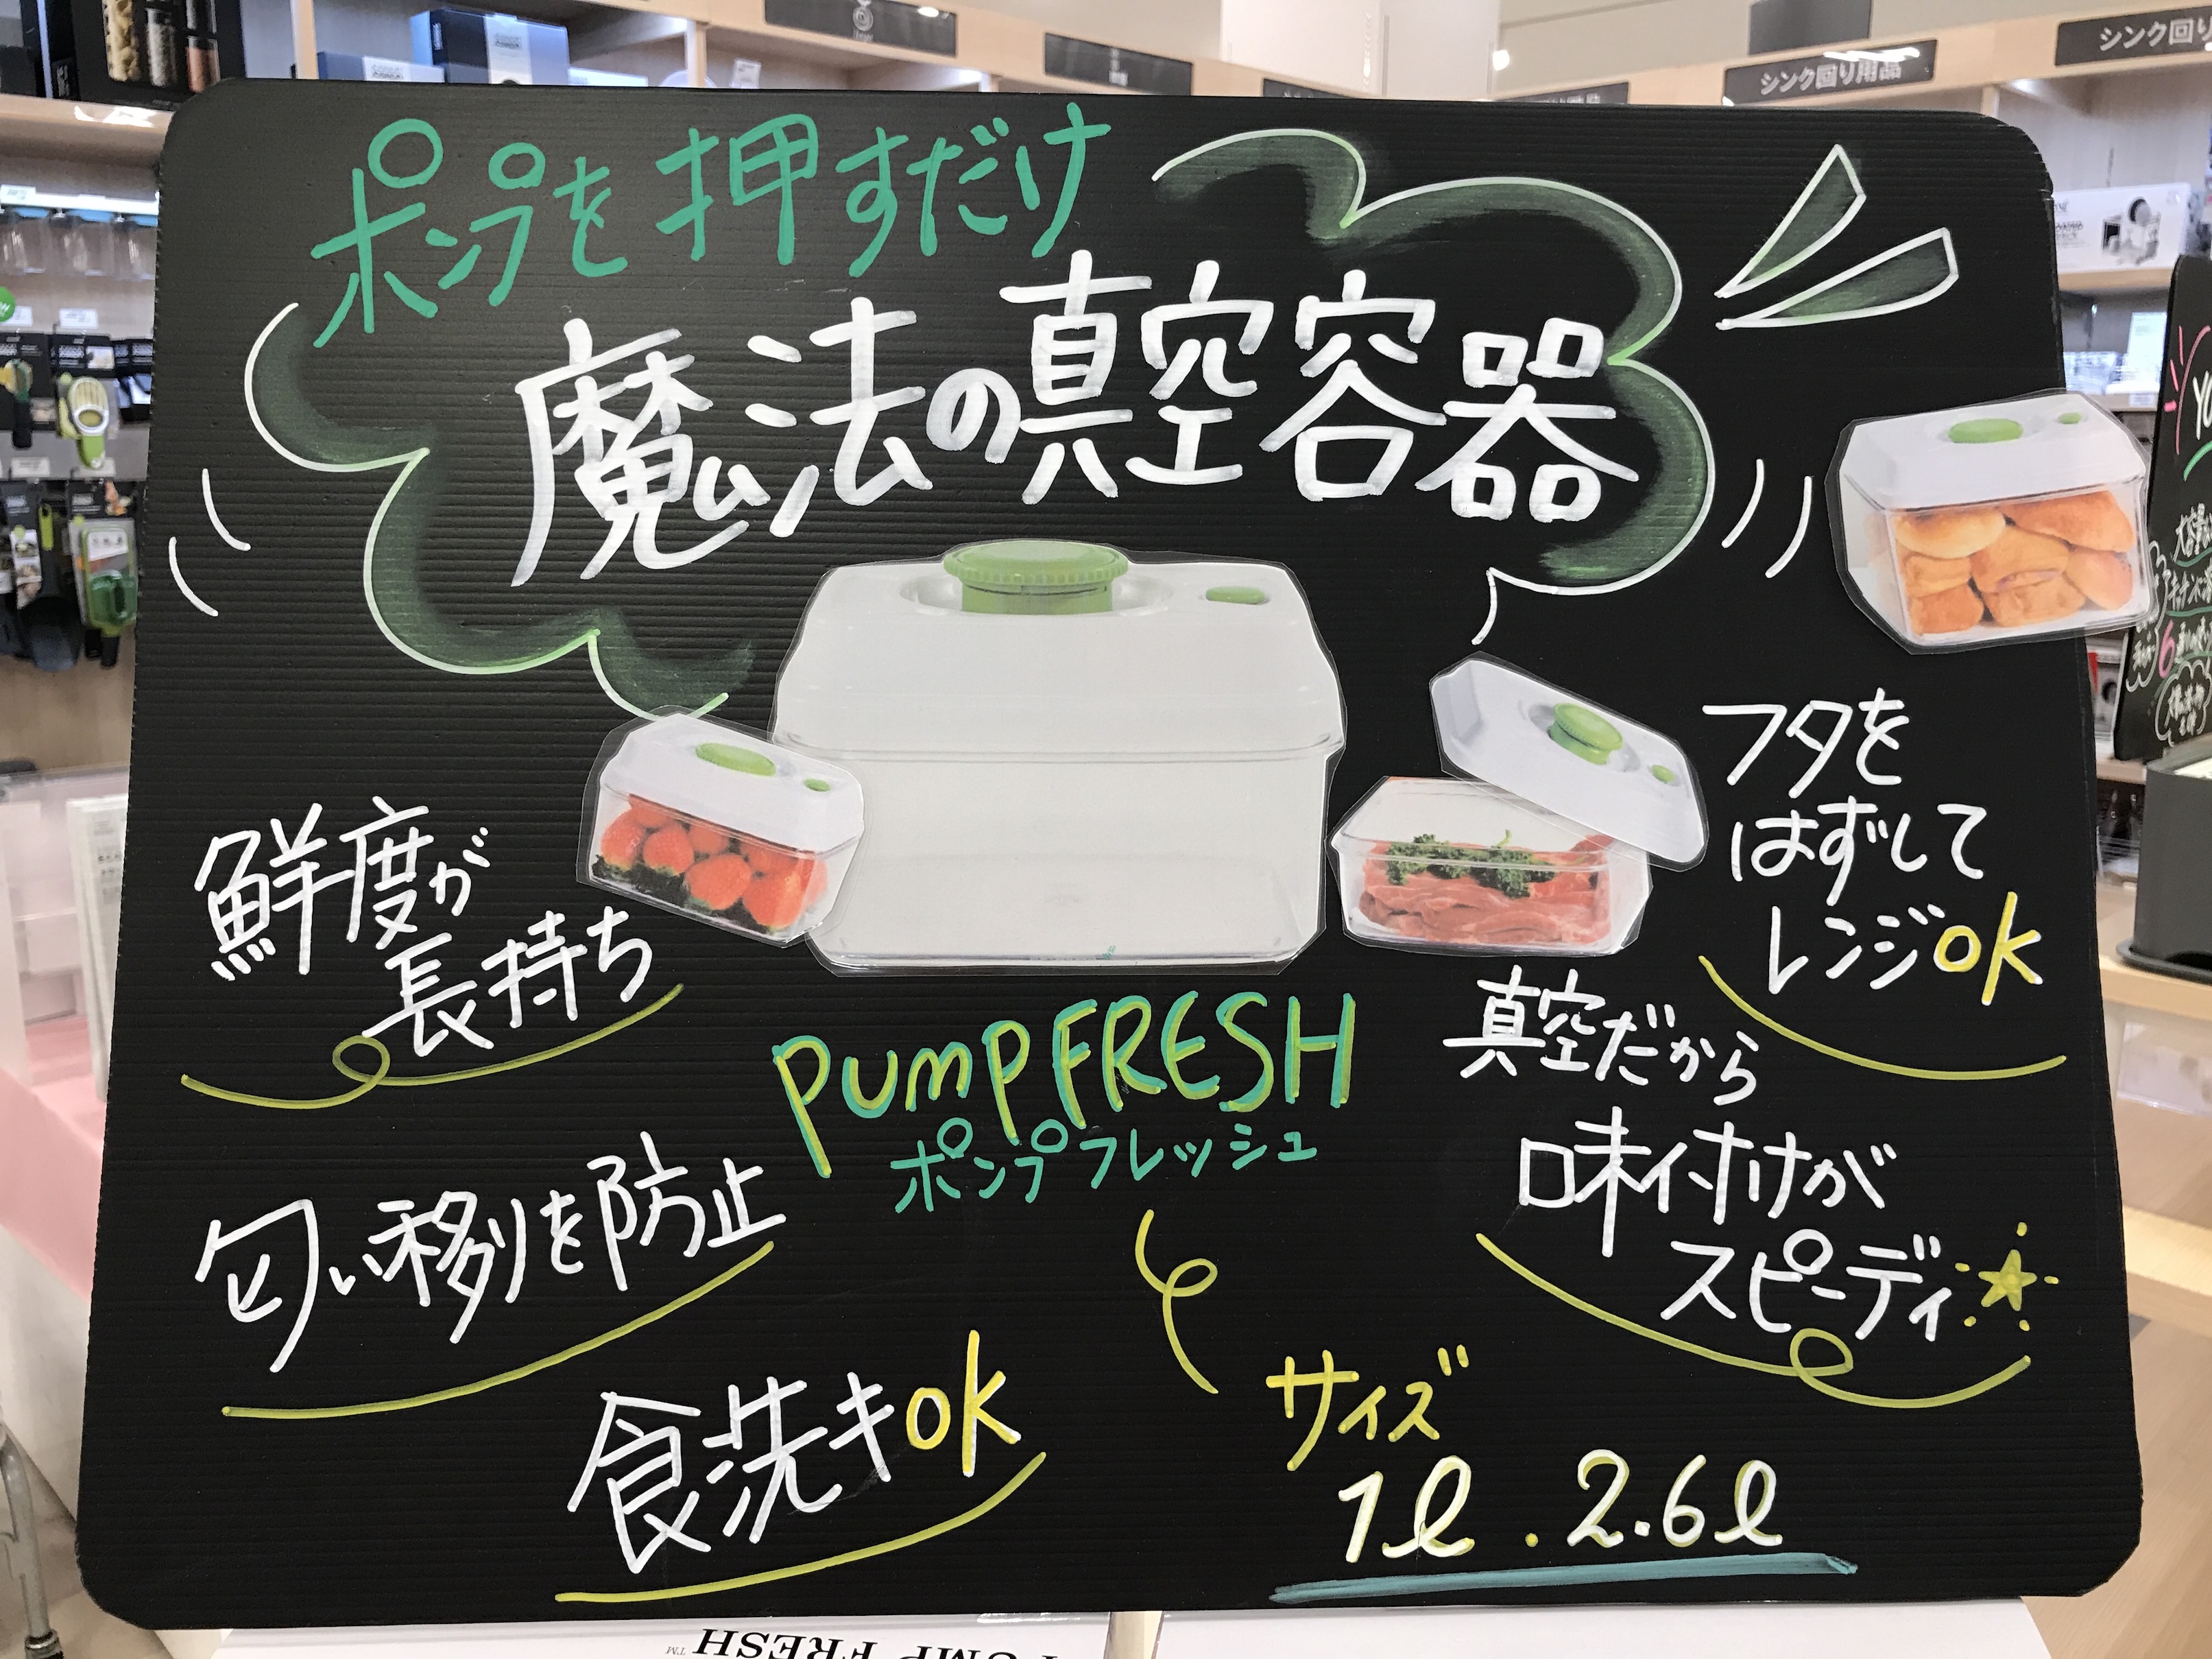 シンク回り用品
シンク回り
ポンプを押すだけ
魔法の真空容器
鮮度が
長持ち
フタを
はずして
レンジok
PUMP FRESH
ポンプフレッシュ
真空だから
味付けが
スピーディ
匂い移りを防止
食洗キok
サイズ
1ℓ . 2.6ℓ
PUMP FRESH™